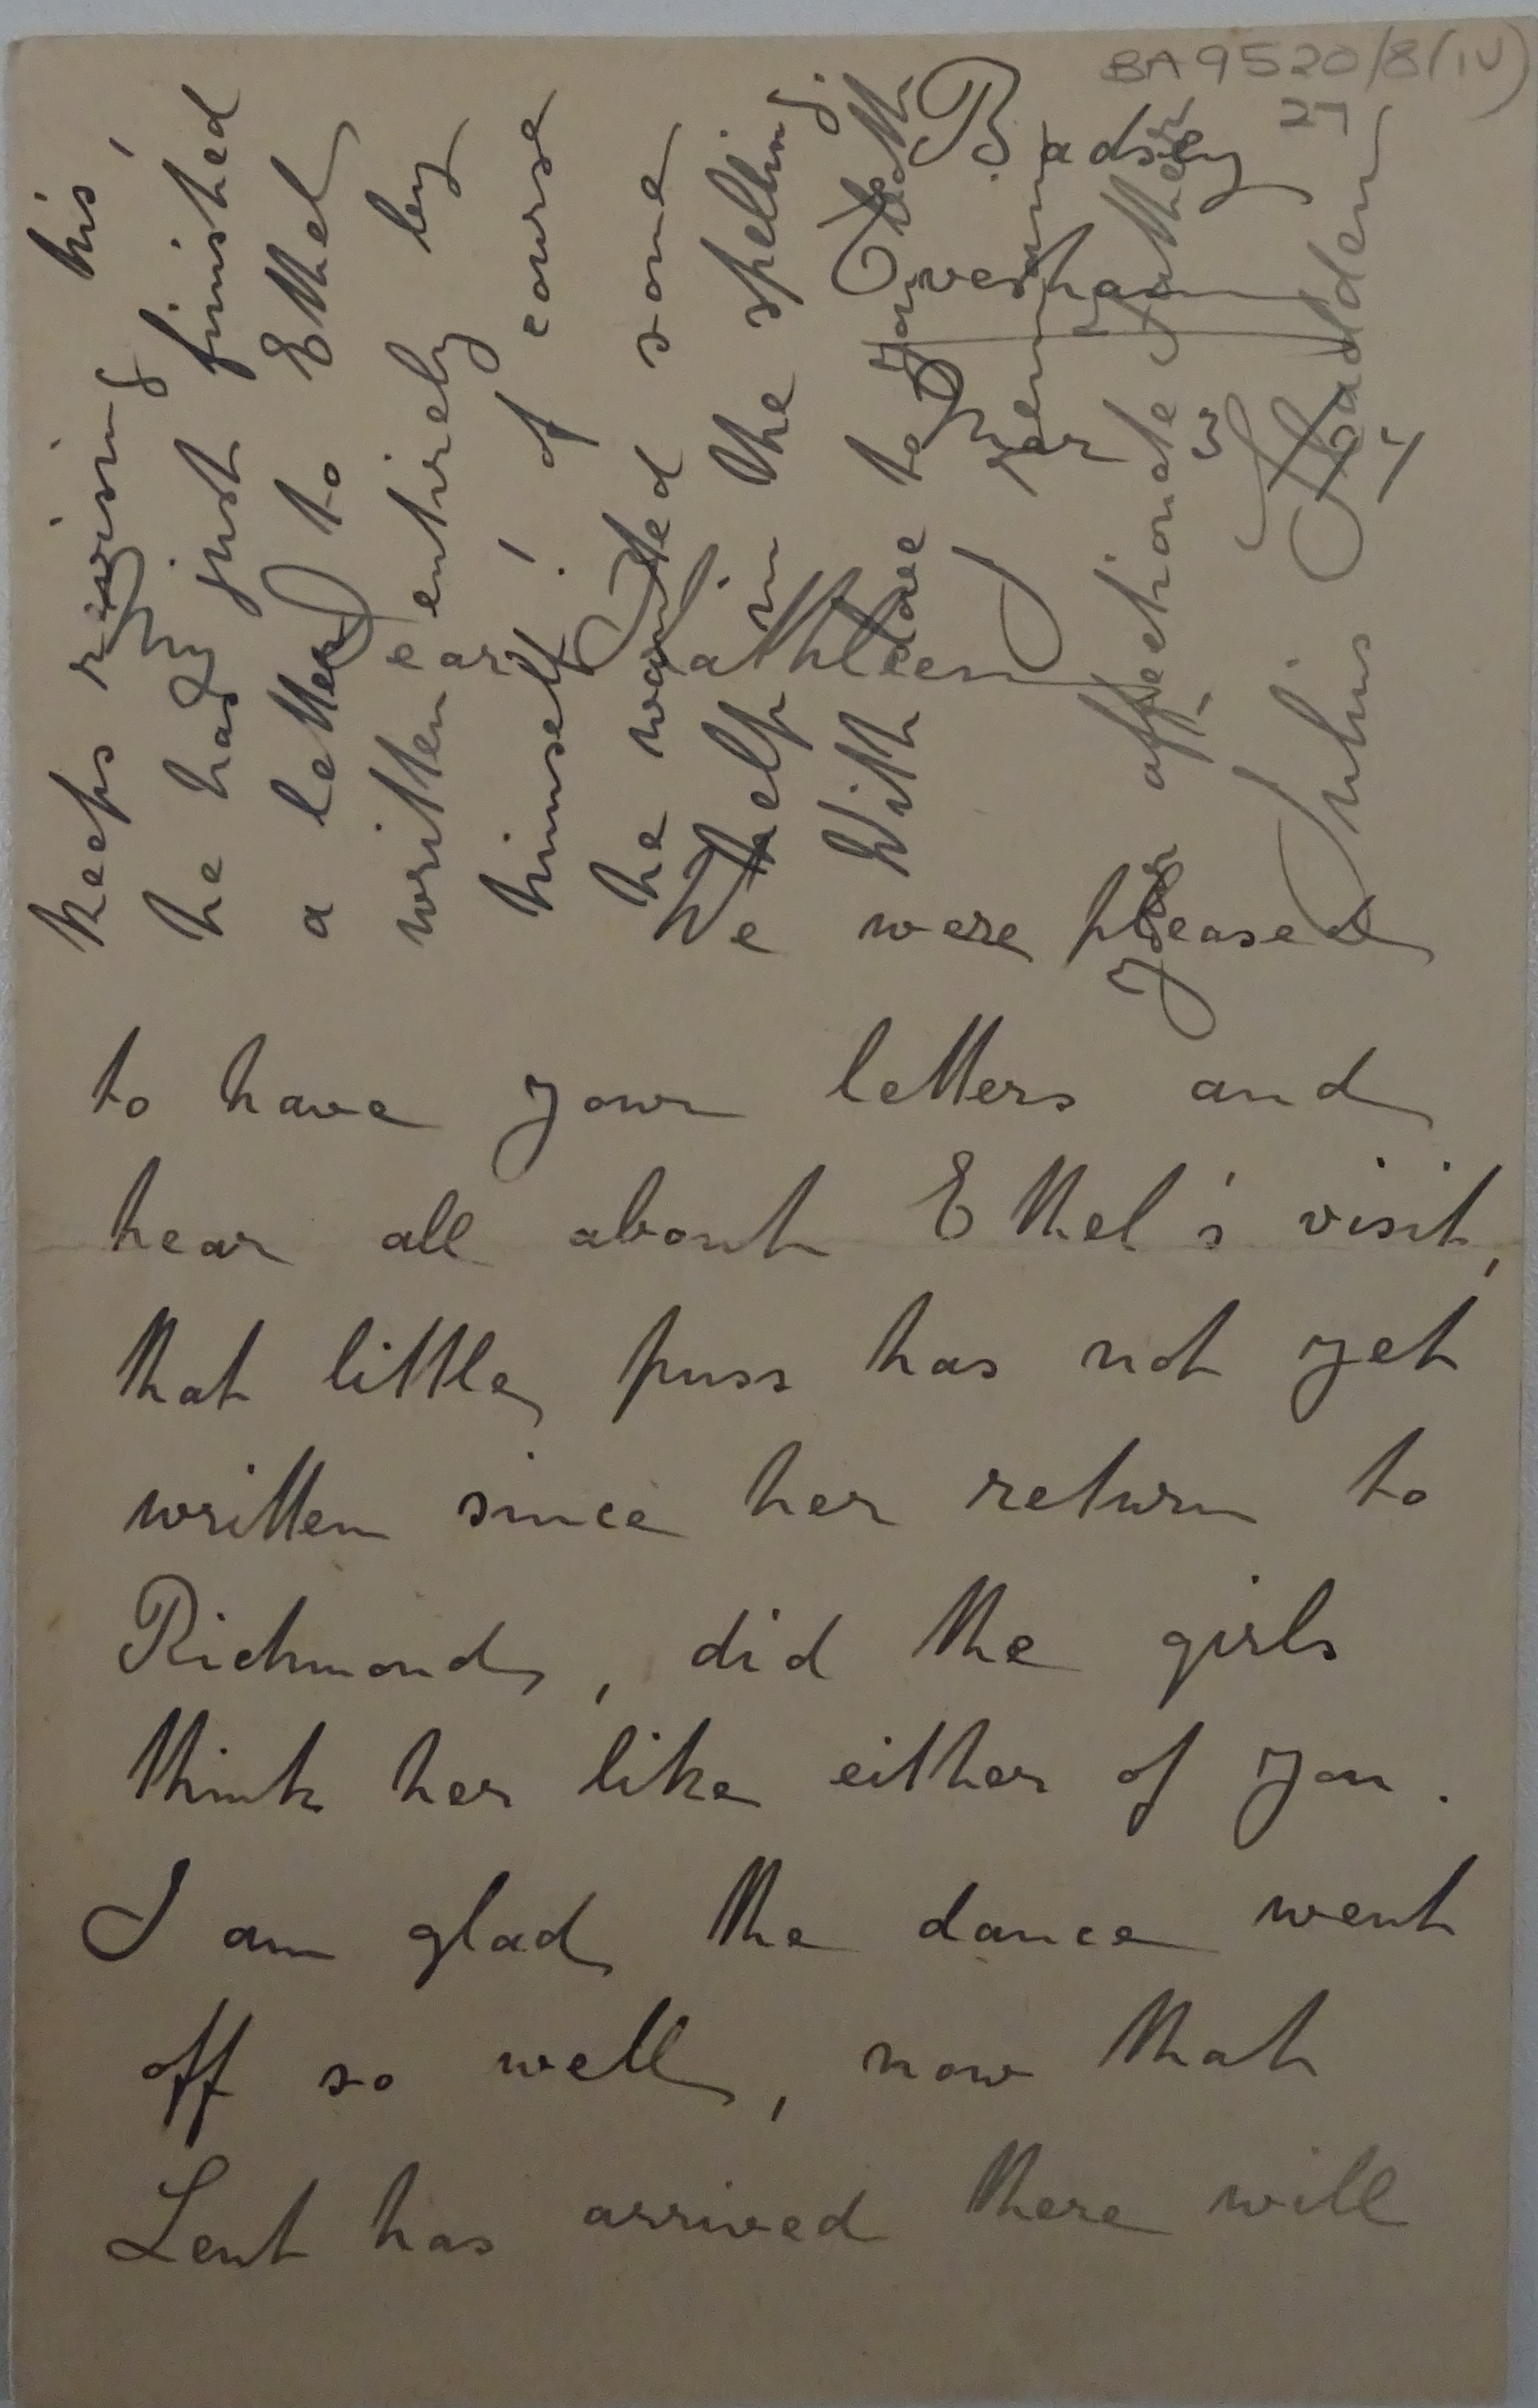 BA 9520/8(iv)
27
Badsey
Evesham
Mar 3
My dear Kathleen
We were pleased
to have your letters and
hear all about Ethel's visit,
that little puss has not yet
written since her return to
Richmond, did the girls
think her like either of you.
I am glad the dance went
off so well, now that
Lent has arrived there will
keeps rising his
he has just finished
a letter to Ethel
written entirely by
himself! of course
he wanted some
help in the spelling.
With love to you both
I remain
yr affectionate father
Julius Sladden